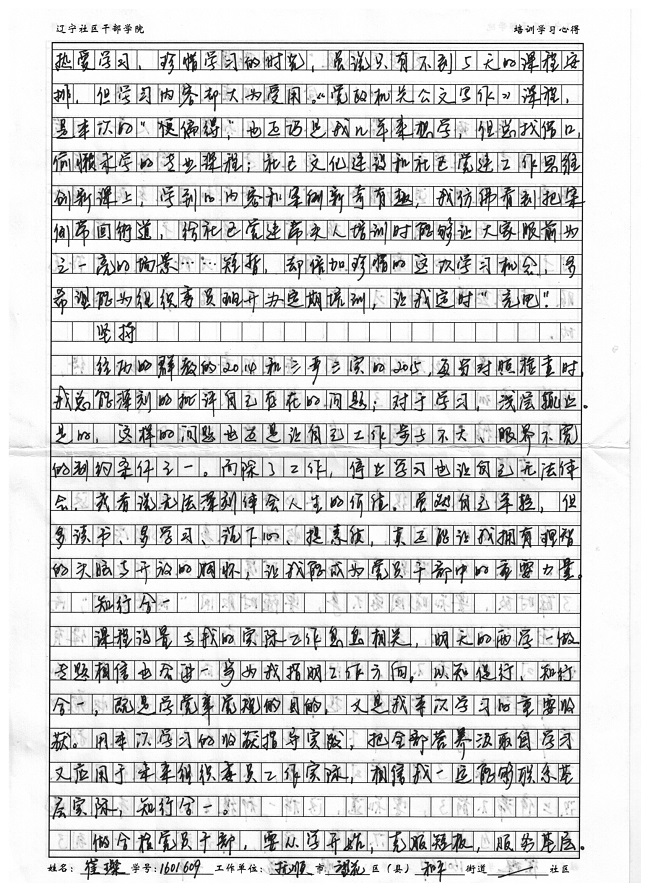 辽宁社区干部学院 培训学习心得
热爱学习，珍惜学习的时光，虽说只有不到5天的课程安
排，但学习内容却大为受用。“党政机关公文写作”课程，
是本次的“硬偏得”也正巧是我几年来想学，但总找借口，
偷懒未学的专业课程；社区文化建设和社区党建工作思维
创新课上，学到的内容和案例新奇有趣，我仿佛看到把案
例带回街道，给社区党建带头人培训时能够让大家眼前为
之一亮的场景……短暂，却倍加珍惜的这次学习机会，多
希望能为组织委员班开办定期培训，让我定时“充电”。
坚持
经历的群教的2014和三严三实的2015，每当对照检查时，
我总能深刻的批评自己存在的问题：对于学习，浅尝辄止。
是的，这样的问题也正是让自己工作步子不大、眼界不宽
的制约条件之一。而除了工作，停止学习也让自己无法体
会、或者说无法深刻体会人生的价值。虽然自己年轻，但
多读书、多学习、沉下心、提素质，真正能让我拥有理智
的头脑与开放的胸怀，让我能成为党员干部中的重要力量。
知行合一
课程设置与我的实际工作息息相关，明天的两学一做
专题相信也会进一步为我指明工作方向，以知促行，知行
合一，既是学党章党规的目的，又是我本次学习的重要收
获。用本次学习的收获指导实践，把全部营养汲取自学习
又应用于未来组织委员工作实际，相信我一定能够联系基
层实际，知行合一。
做合格党员干部，要从学开始，克服短板，服务基层。
姓名：崔璨 学号：1601609 工作单位：抚顺 市 望花 区（县） 和平 街道 社区